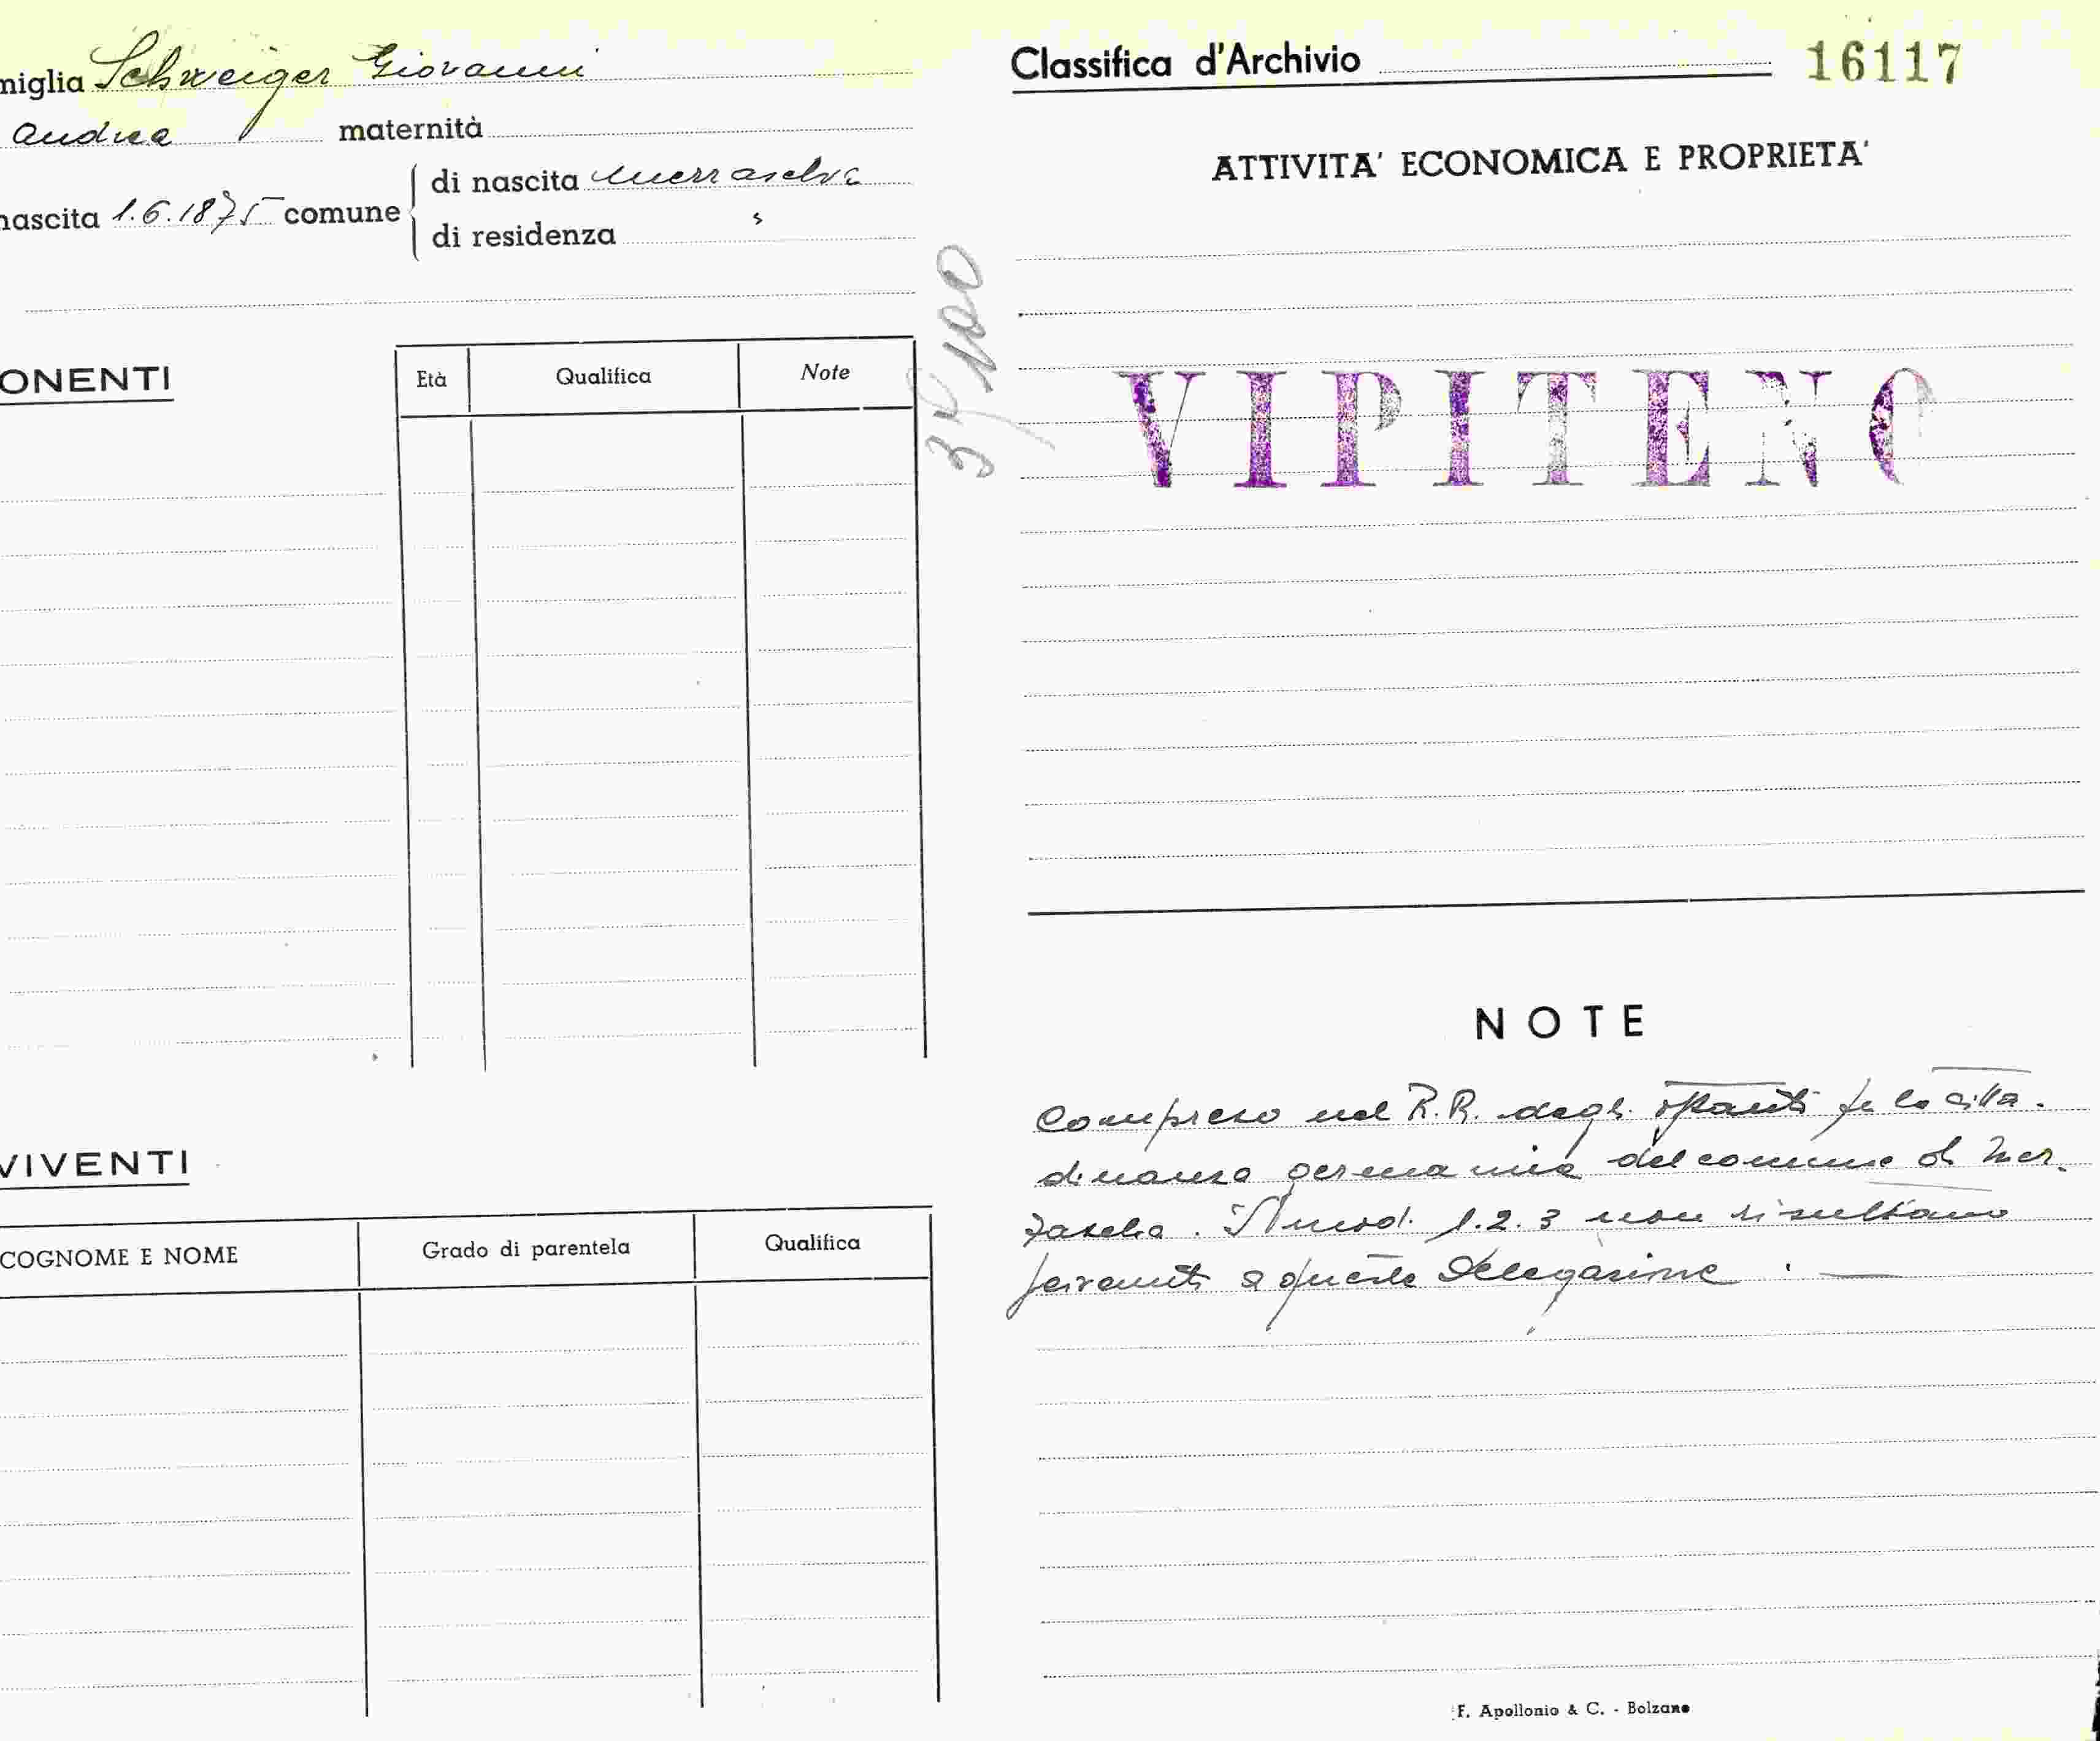 miglia Schweiger Giovanni
Andrea maternità
nascita 1.6.1875 comune di nascita Mezzaselva
di residenza
ONENTI
Età Qualifica Note
VIVENTI
COGNOME E NOME Grado di parentela Qualifica
Classifica d'Archivio 16117
ATTIVITA' ECONOMICA E PROPRIETA'
VIPITENO
NOTE
Compreso nel R.R. degli optanti per la citta-
dinanza germanica del comune di Mez-
zaselva. I mod. 1.2.3 non risultano
pervenuti a queste Delegazione.
F. Apollonio & C. - Bolzano